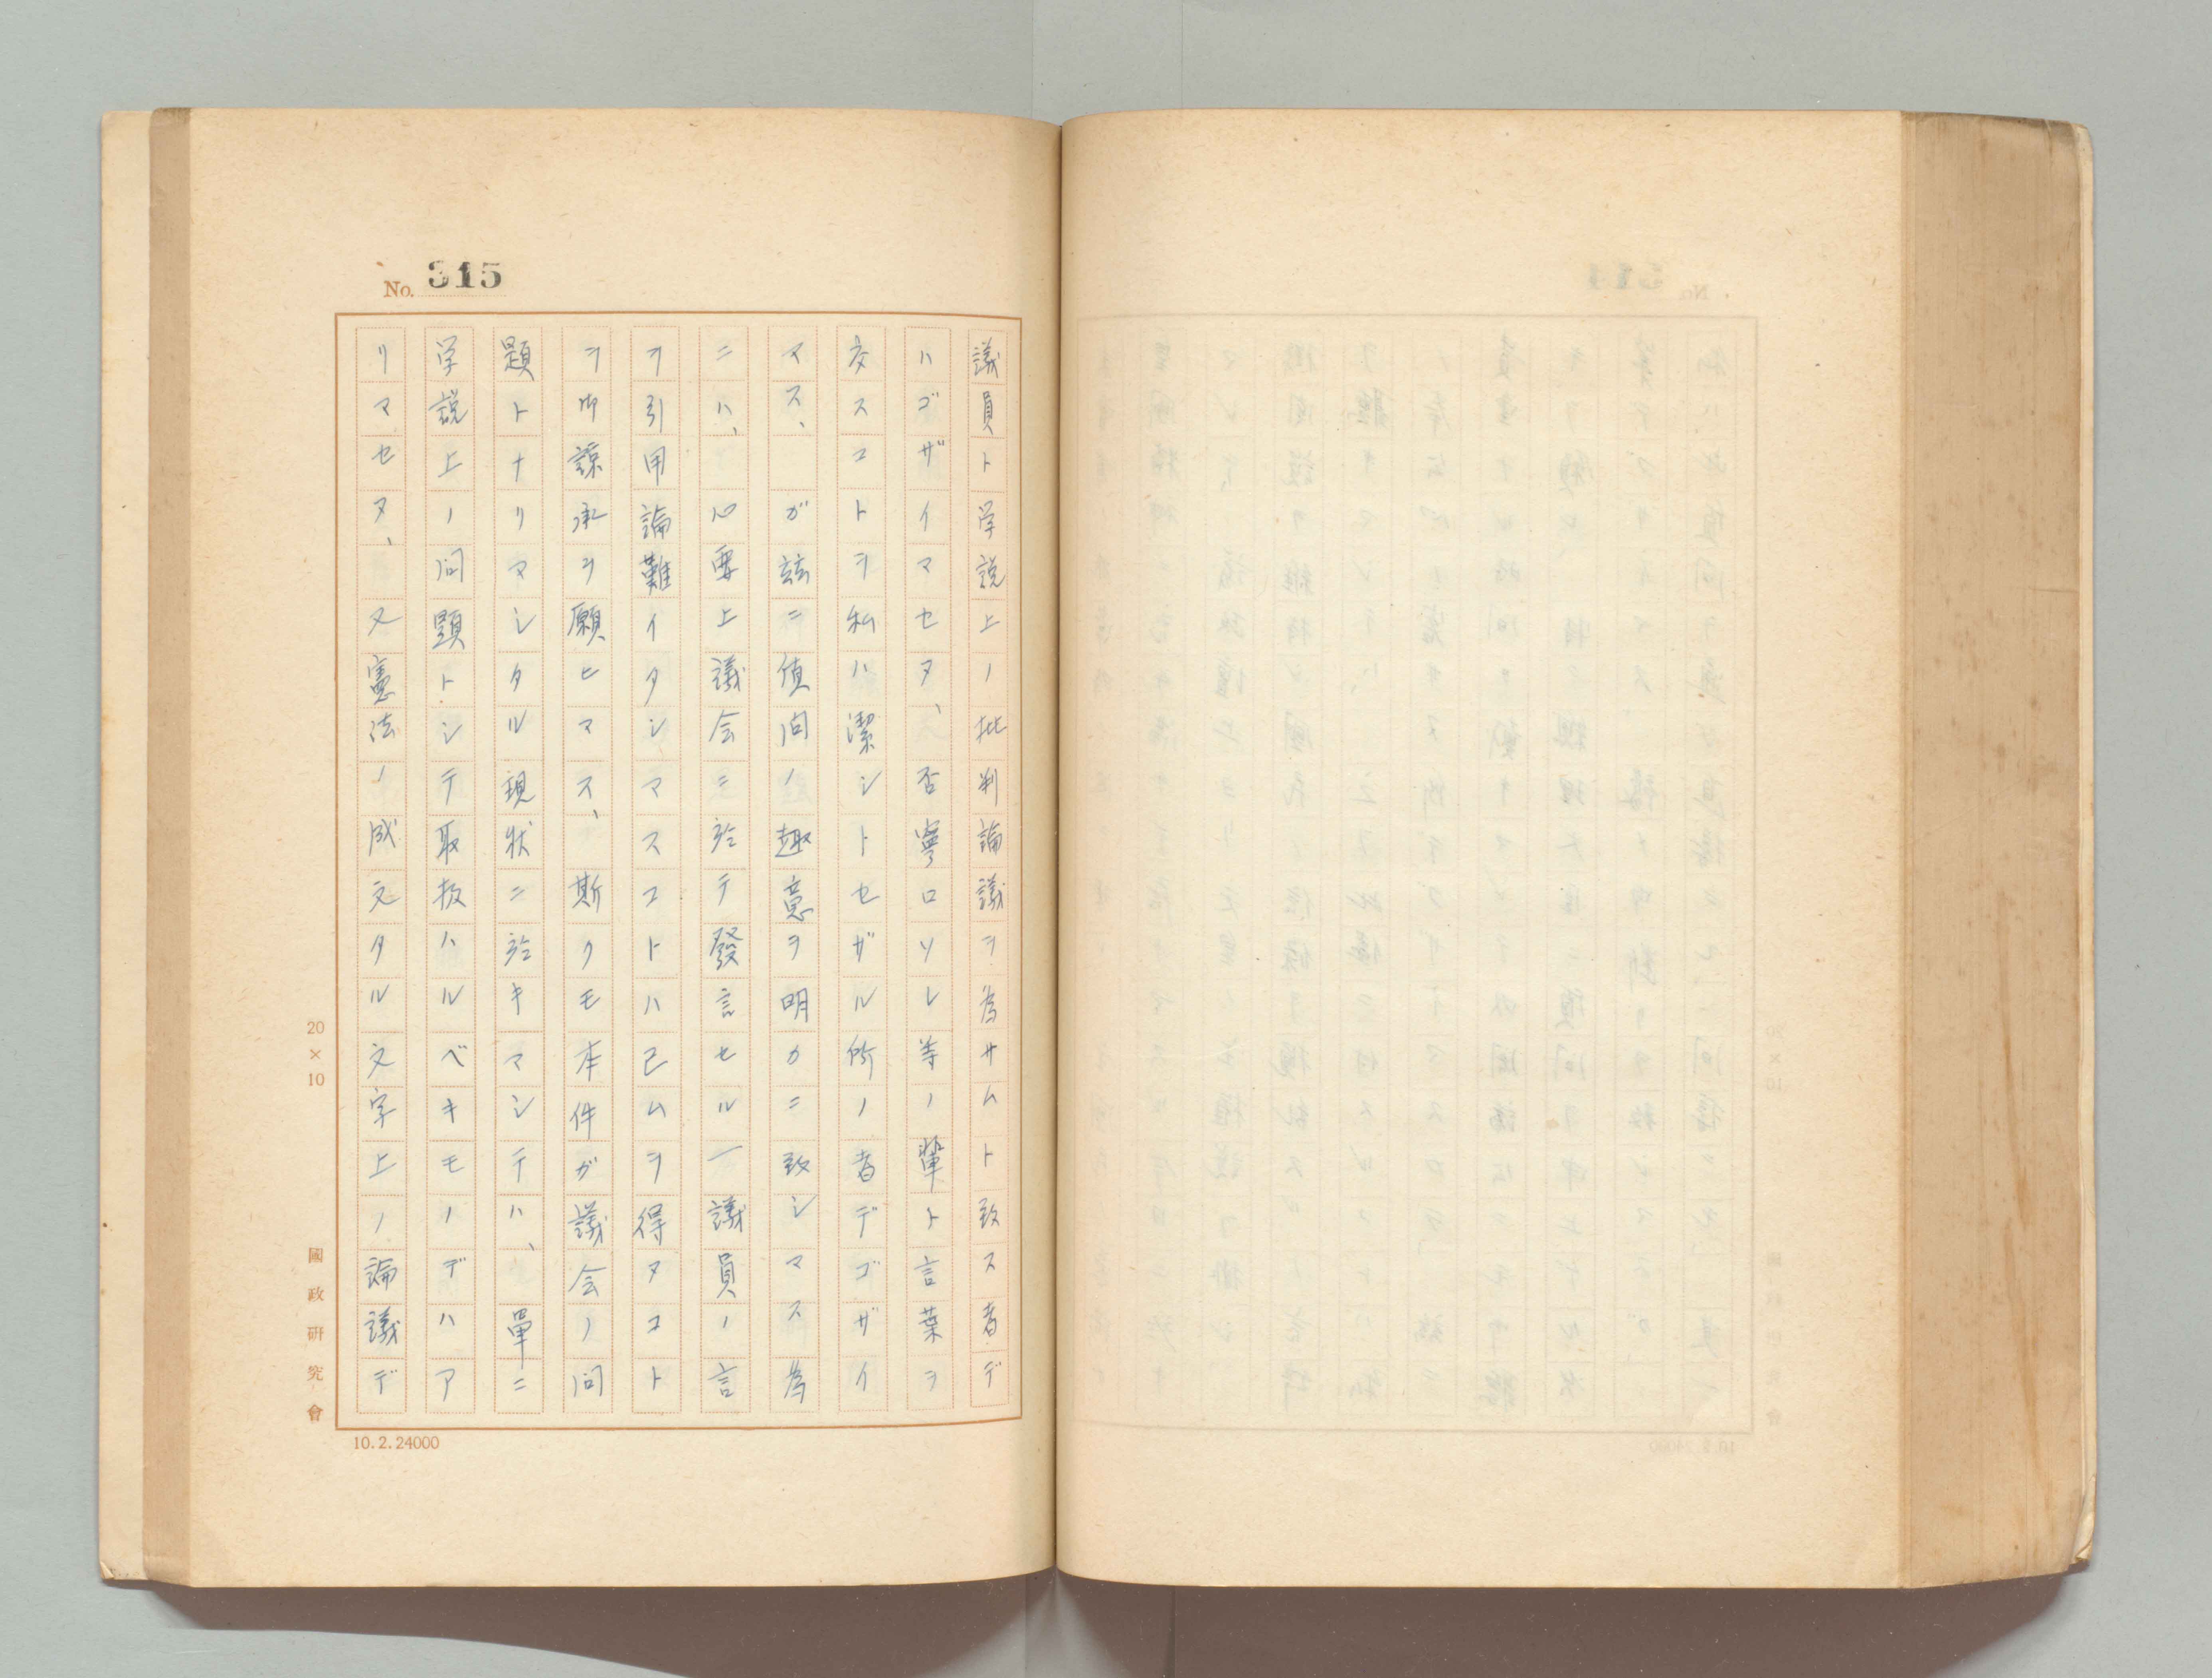 No. 315
議員ト学説上ノ批判論議ヲ為サムト致ス者デ
ハゴザイマセヌ、否寧ロソレ等ノ輩ト言葉ヲ
交スコトヲ私ハ潔シトセザル所ノ者デゴザイ
マス、ガ玆ニ質問ノ趣意ヲ明カニ致シマス為
ニハ、心要上議会ニ於テ發言セル一議員ノ言
ヲ引用論難イタシマスコトハ已ムヲ得ヌコト
ヲ御諒承ヲ願ヒマス、斯クモ本件ガ議会ノ問
題トナリマシタル現状ニ於キマシテハ、單ニ
学説上ノ問題トシテ取扱ハルベキモノデハア
リマセヌ、又憲法ノ成文タル文字上ノ論議デ
20×10
國政研究會
10.2.24000